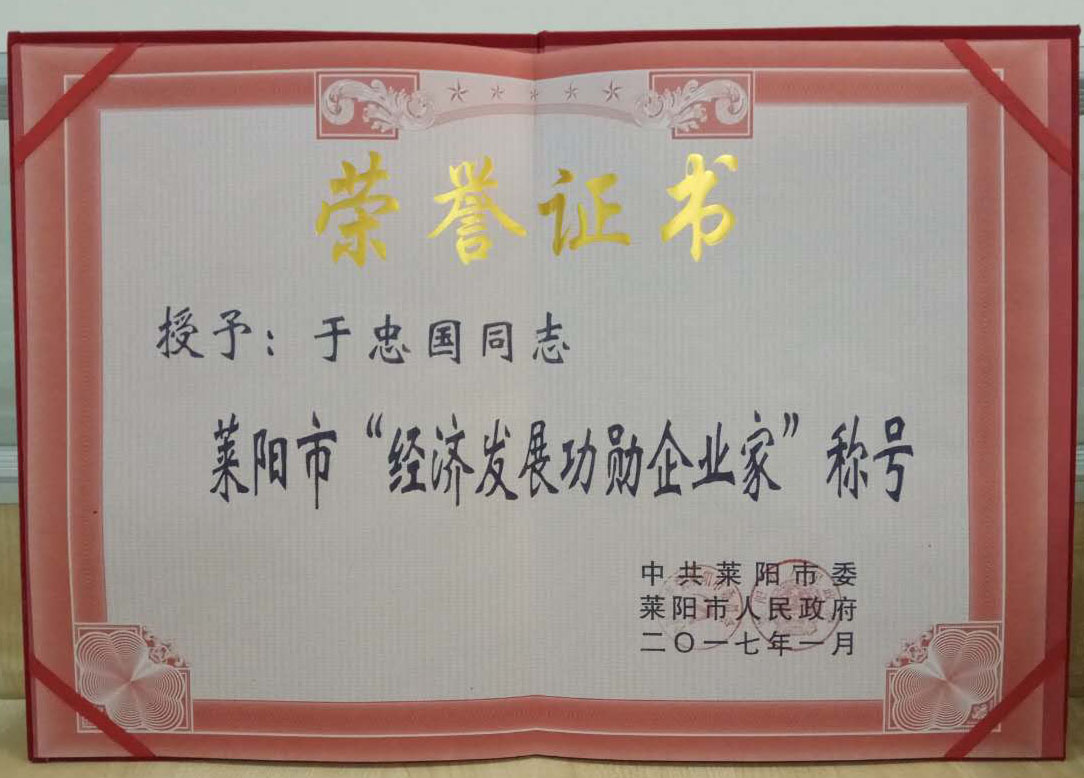 荣誉证书
授予：于忠国同志
莱阳市“经济发展功勋企业家”称号
中共莱阳市委
莱阳市人民政府
二〇一七年一月